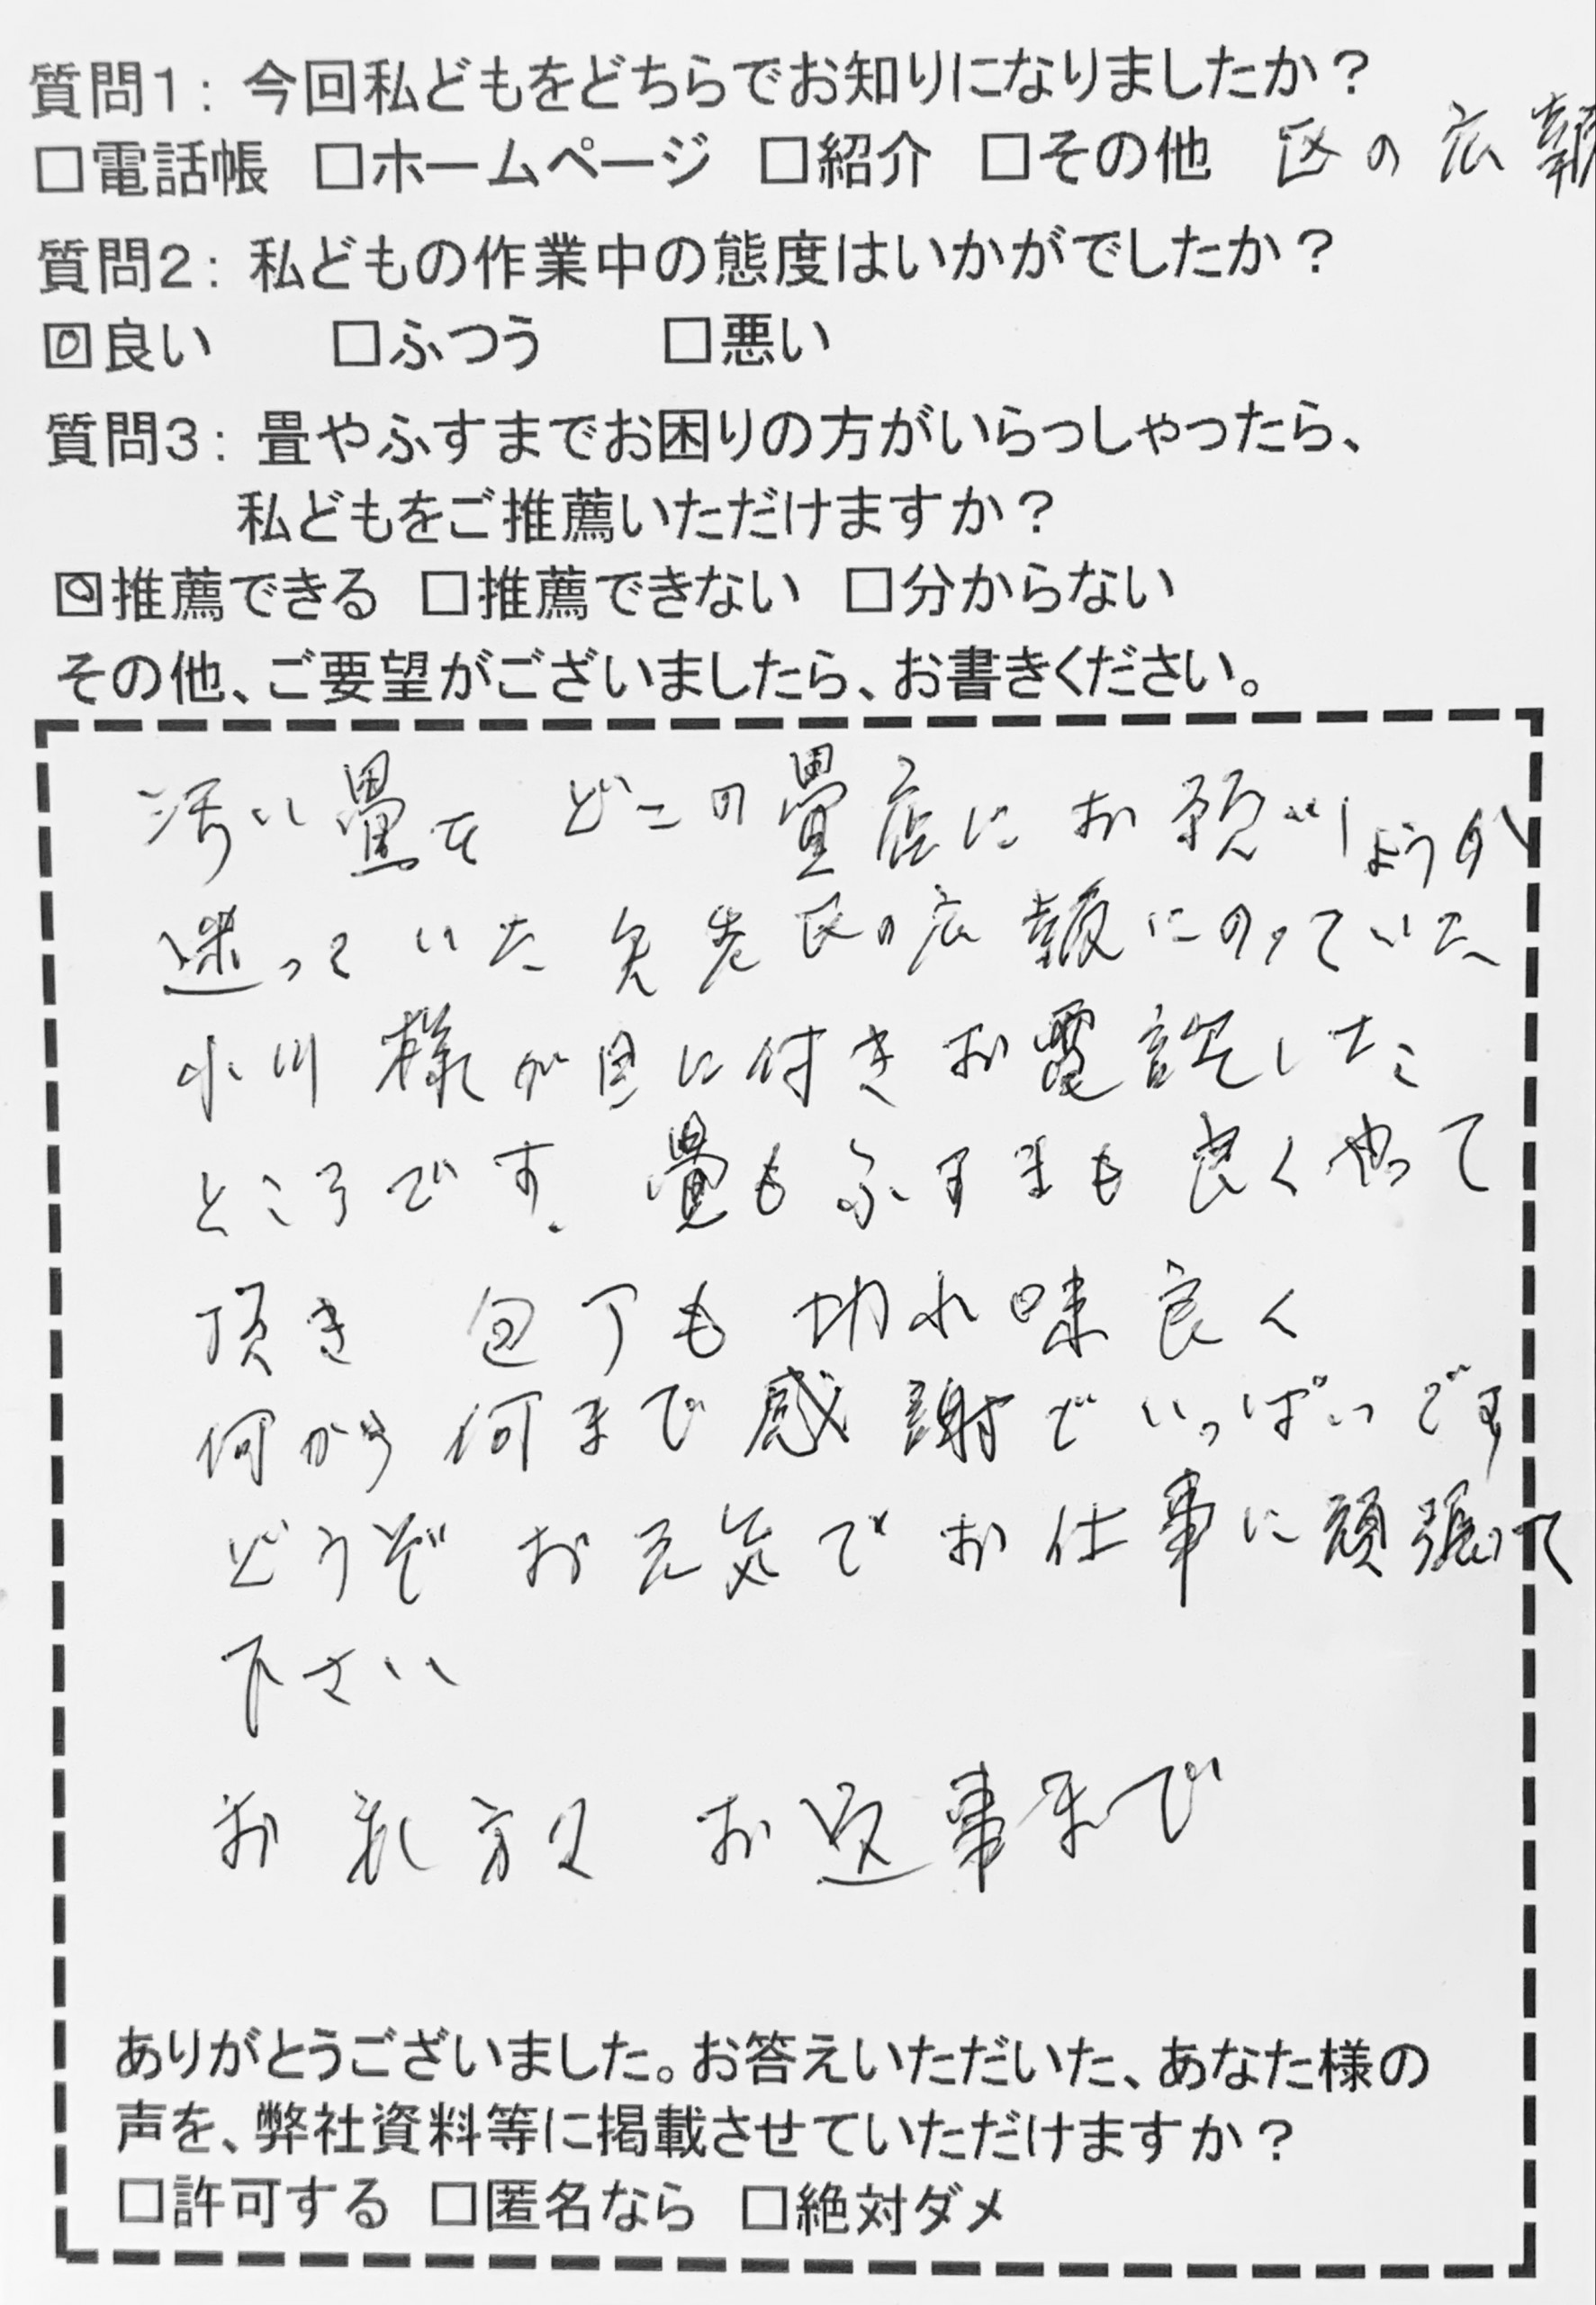 質問1：今回私どもをどちらでお知りになりましたか？
□電話帳 □ホームページ □紹介 □その他 区の広報
質問2：私どもの作業中の態度はいかがでしたか？
☑良い □ふつう □悪い
質問3：畳やふすまでお困りの方がいらっしゃったら、
私どもをご推薦いただけますか？
☑推薦できる □推薦できない □分からない
その他、ご要望がございましたら、お書きください。
汚い畳を どこの畳店にお願いしようか
迷っていた矢先区の広報にのっていた
小川様が目に付きお電話した
ところです。畳もふすまも良くやって
頂き 包丁も切れ味良く
何から何まで感謝でいっぱいです
どうぞお元気でお仕事に頑張って
下さい
お礼方々 お返事まで
ありがとうございました。お答えいただいた、あなた様の
声を、弊社資料等に掲載させていただけますか？
□許可する □匿名なら □絶対ダメ